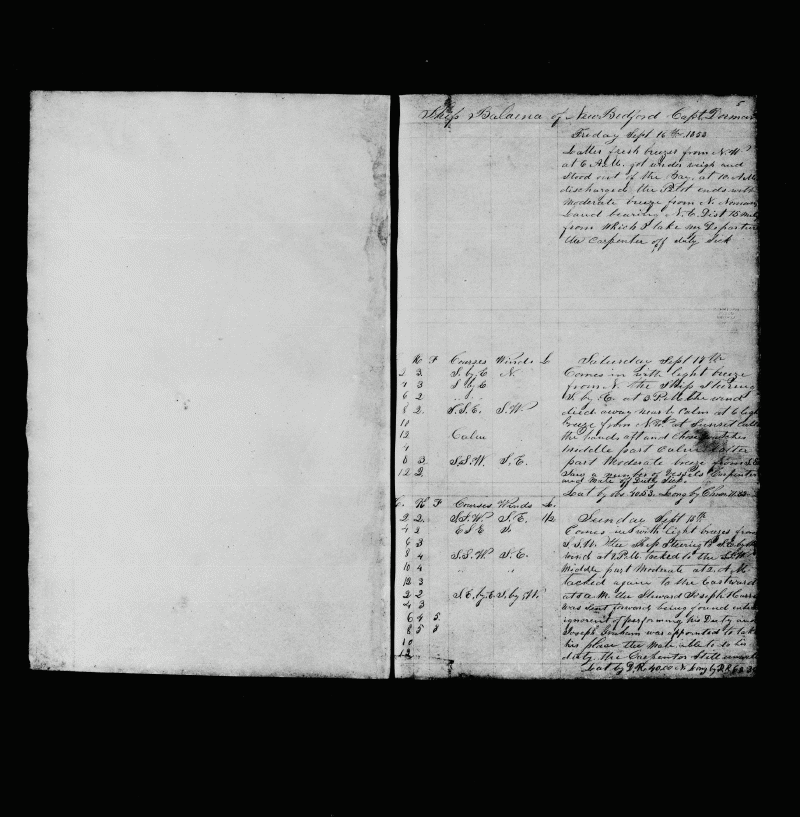 5
Ship Balaena of New Bedford Capt. Dorman
Friday Sept 16th 1853
Latter fresh breezes from N.W
at 6 A.M. got under weigh and
stood out of the Bay. at 10 A.M.
discharged the Pilot ends with
Moderate breeze from N.
Land bearing N.E. Dist 15 Miles
from which I take my Departure
the Carpenter off duty Sick
K F Courses Winds L Saturday Sept 17th
2 3 S. by E N. Comes in with light breeze
4 3 S by E from N. the Ship Steering
6 2 " " S. by E. at 3 P.M. the wind
8 2 S.S.E. S.W. died away nearly Calm at 6 light
10 breeze from at Sunset Called
12 Calm the hands aft and Chose watches
4 Middle part Calm Latter
8 3 S.S.W. S.E. part Moderate breeze from S.E.
12 2 Saw a number of Vessels Carpenter
and Mate off Duty Sick
Lat by obs Long by Chron
H. K F Courses Winds L. Sunday Sept 18th
2 2 S.S.W. S.E. 1/2 Comes in with light breezes from
4 2 E S E S S.S.W. the Ship Steering
6 3 wind at P.M. tacked to the
8 4 S.S.W S.E. Middle part Moderate at 2 A.M.
10 4 " " tacked again to the Eastward
12 3 at A.M. the Steward Joseph
2 2 S.E. by E S. by W. was sent forward being found
4 3 ignorent of performing his Duty and
6 4 5 Joseph Graham was appointed to take
8 5 his place the Mate able to do his
10 duty. the Carpenter Still
12 Lat by D.R. 40.00 N Long by D.R.